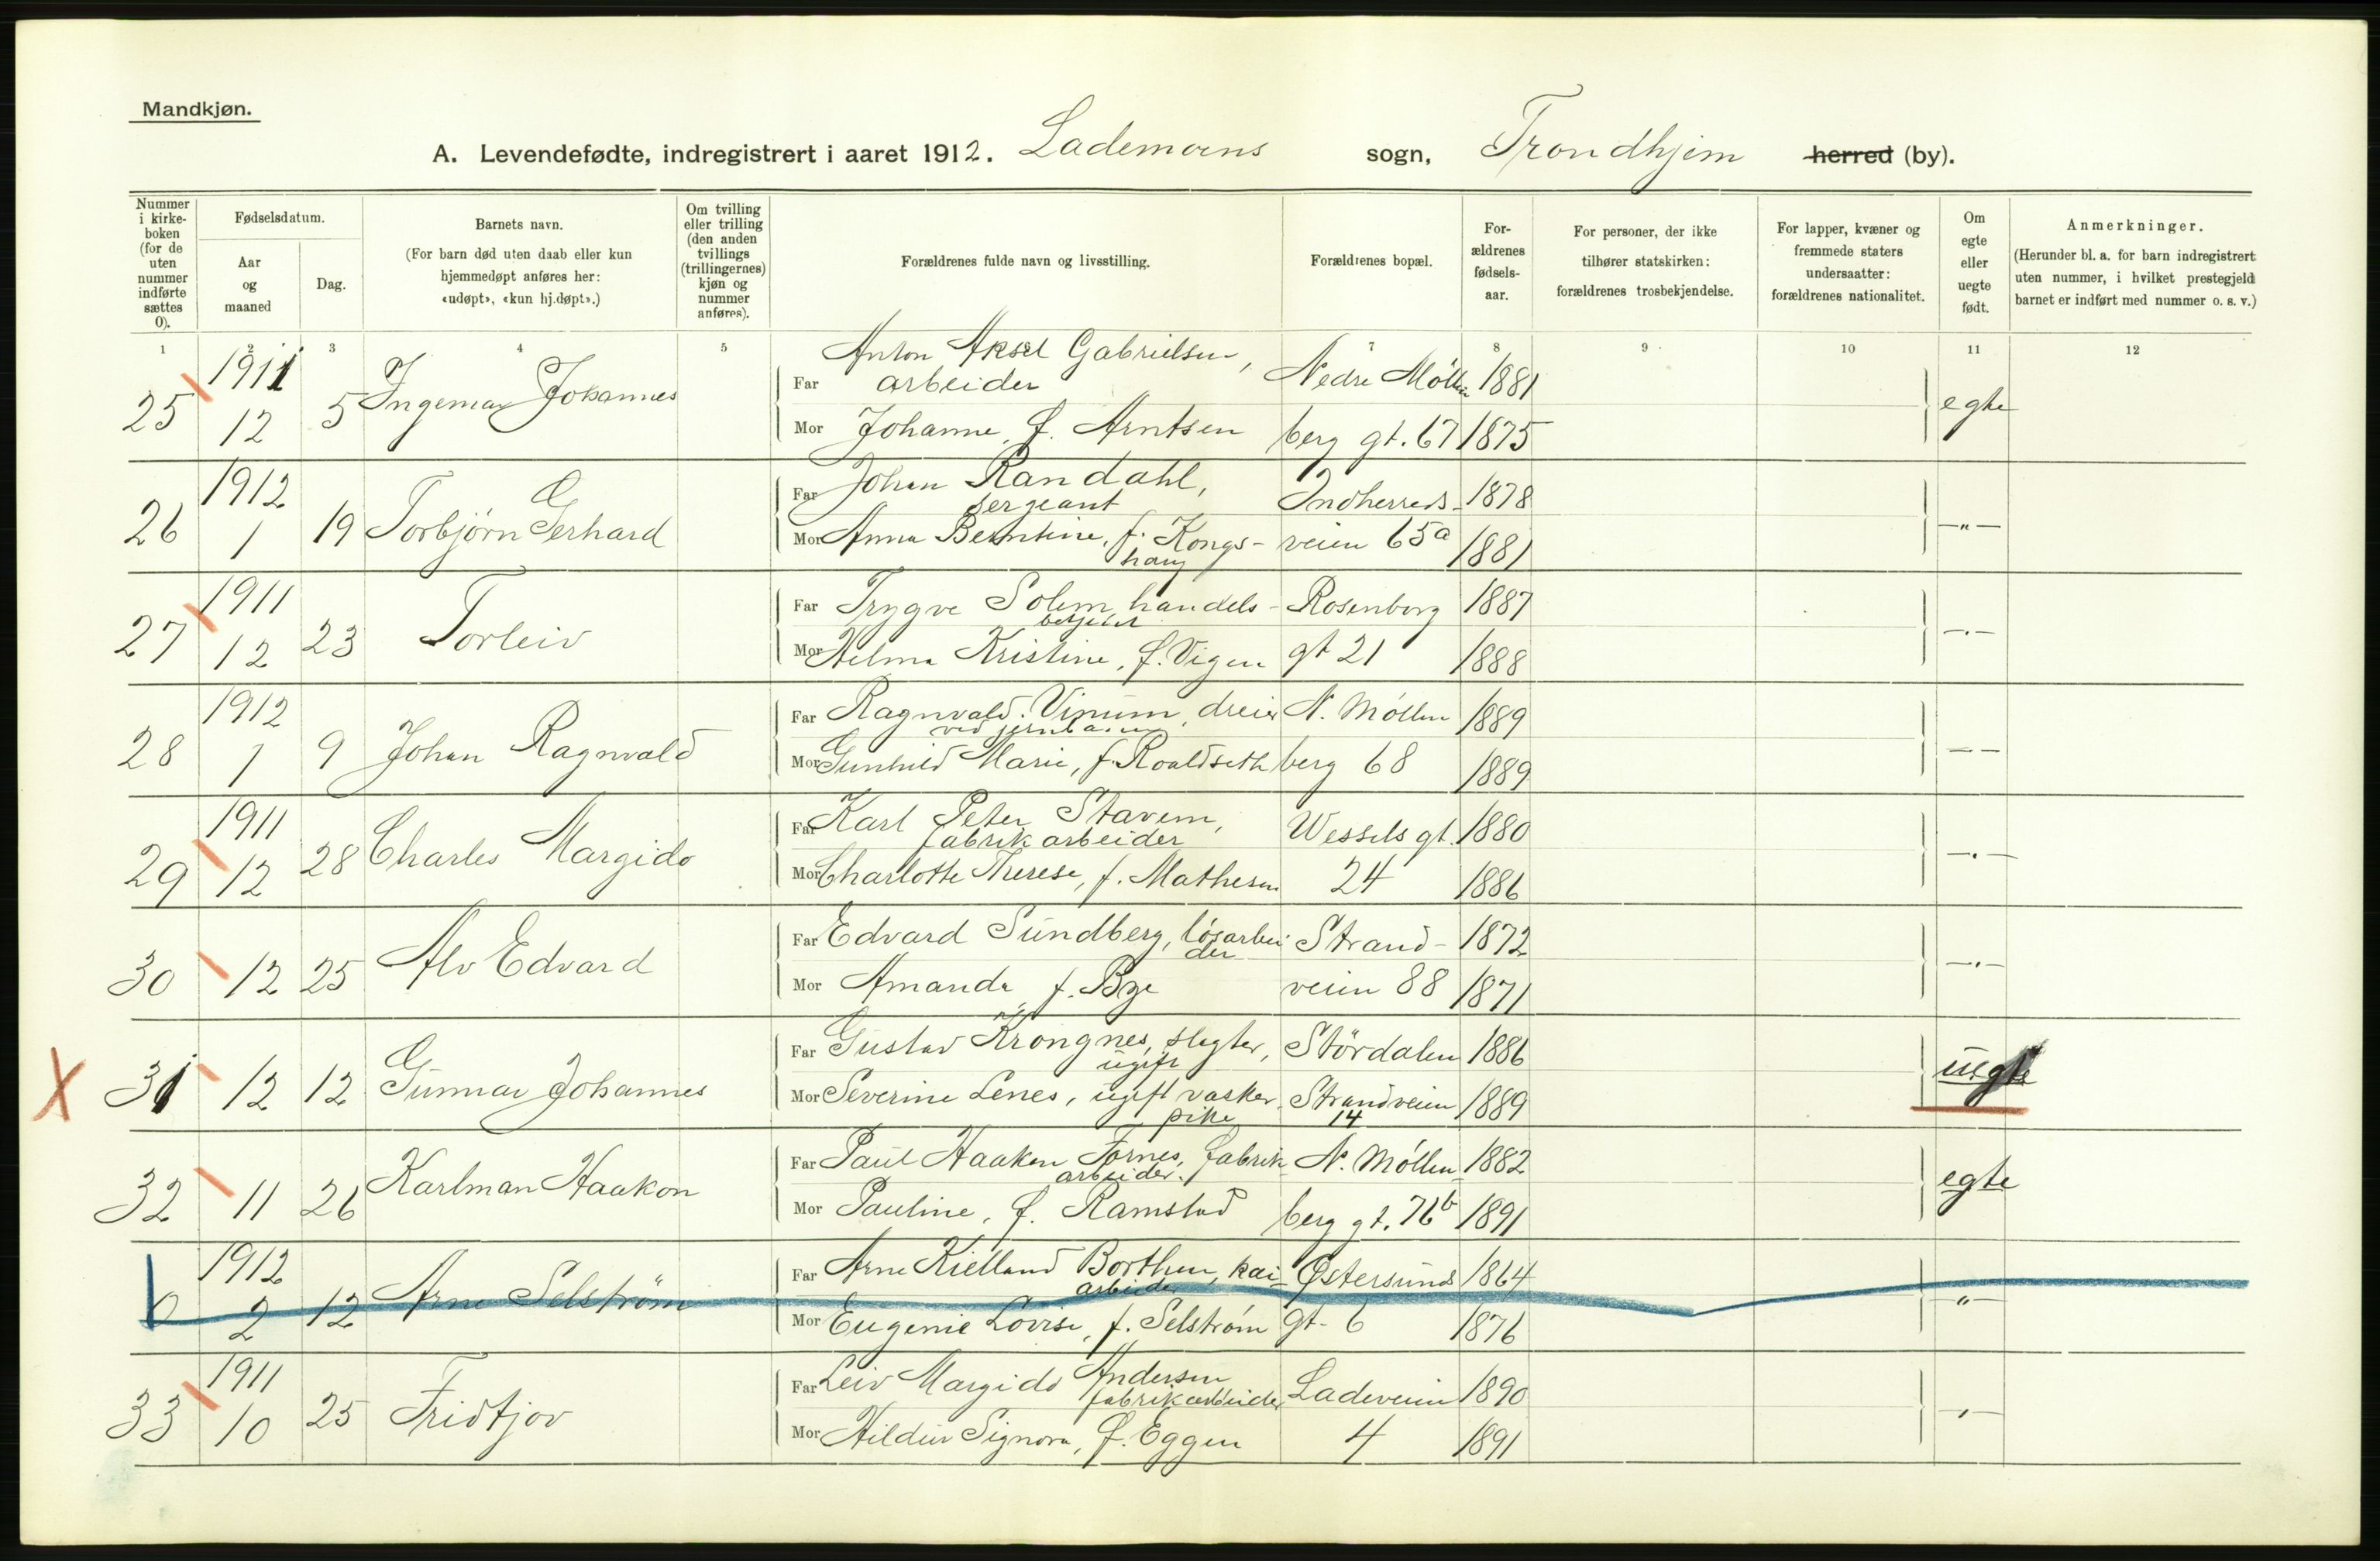 Mandkjøn.
A. Levendefødte, indregistrert i aaret 1912. Lademoens sogn, Trondhjem herred (by).
Nummer i kirkeboken (for de uten nummer indførte sættes 0).
Fødselsdatum.
Aar og maaned
Dag.
Barnets navn.
(For barn død uten daab eller kun hjemmedøpt anføres her: «udøpt», «kun hj.døpt».)
Om tvilling eller trilling (den anden tvillings (trillingernes) kjøn og nummer anføres).
Forældrenes fulde navn og livsstilling.
Forældrenes bopæl.
Forældrenes fødselsaar.
For personer, der ikke tilhører statskirken: forældrenes trosbekjendelse.
For lapper, kvæner og fremmede staters undersaatter: forældrenes nationalitet.
Om egte eller uegte født.
Anmerkninger.
(Herunder bl. a. for barn indregistrert uten nummer, i hvilket prestegjeld barnet er indført med nummer o. s. v.)
1 2 3 4 5 7 8 9 10 11 12
25 1911 12 5 Ingemar Johannes
Far Anton Aksel Gabrielsen, arbeider Nedre Møllen 1881 egte
Mor Johanne, f. Arntsen berg gt. 67 1875
26 1912 1 19 Torbjørn Gerhard
Far Johan Randahl, sergeant Indherreds- 1878 —"—
Mor Anna Berntine, f. Kongshaug veien 65a 1881
27 1911 12 23 Torleiv
Far Trygve Solem, handelsbetjent Rosenborg 1887 —"—
Mor Helma Kristine, f. Vigen gt 21 1888
28 1912 1 9 Johan Ragnvald
Far Ragnvald Vinum, dreier ved jernbanen N. Møllen 1889 —"—
Mor Gunhild Marie, f. Roaldseth berg 68 1889
29 1911 12 28 Charles Margido
Far Karl Peter Stavem, fabrikarbeider Wessels gt. 1880 —"—
Mor Charlotte Therese, f. Mathesen 24 1886
30 12 25 Alv Edvard
Far Edvard Sundberg, løsarbeider Strand- 1872 —"—
Mor Amanda, f. Bye veien 88 1871
X 31 12 12 Gunnar Johannes
Far Gustav Krongnes, slagter, ugift Stördalen 1886 uegte
Mor Severine Lenes, ugift vaskerpike Strandveien 14 1889
32 11 26 Karlman Haakon
Far Paul Haaken Fornes, fabrikarbeider. N. Møllen- 1882 egte
Mor Pauline, f. Ramstad berg gt. 76b 1891
0 1912 2 12 Arne Selström
Far Arne Kielland Borthen, kaiarbeider Østersunds 1864 "
Mor Eugenie Lovise, f. Selstrøm gt. 6 1876
33 1911 10 25 Fridtjov
Far Leiv Margido Andersen fabrikarbeider Ladeveien 1890 —"—
Mor Hildur Signora, f. Eggen 4 1891